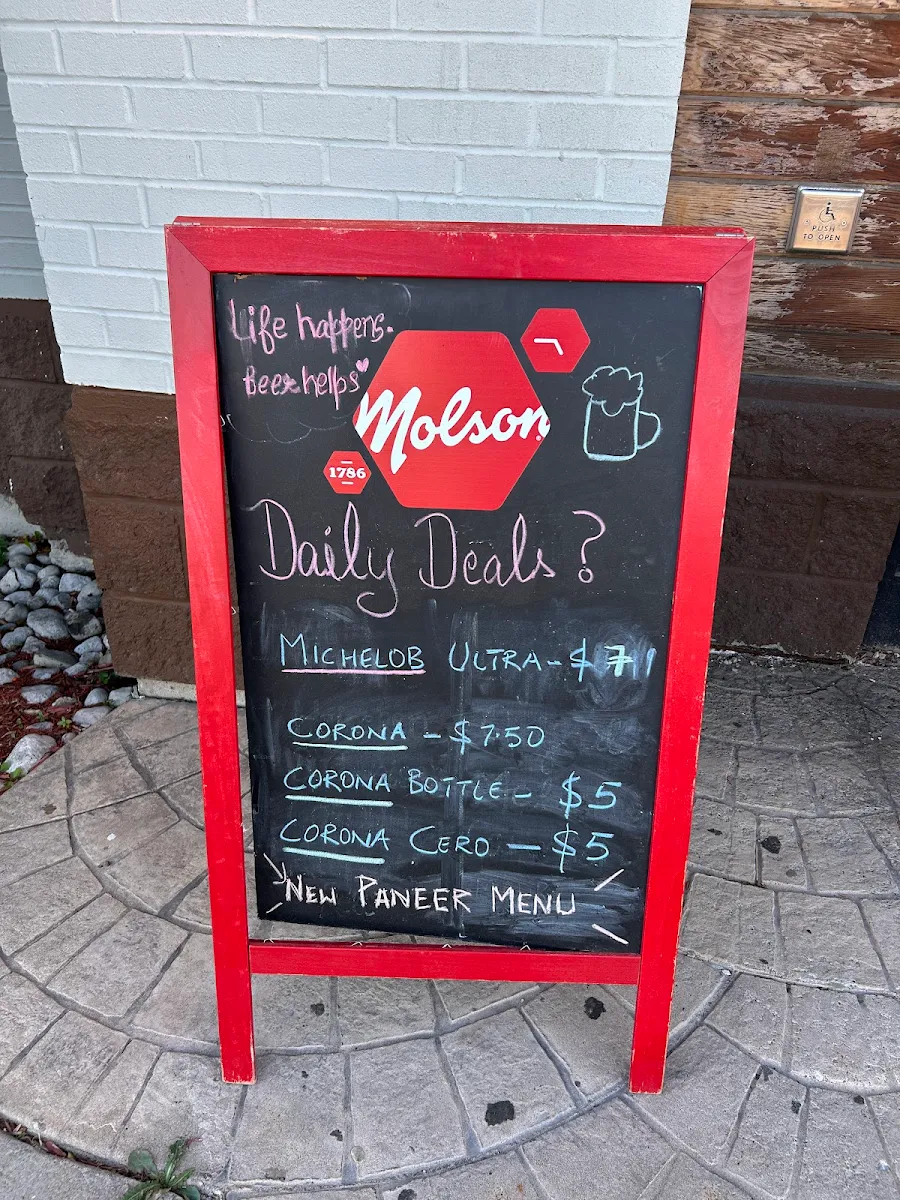 Life happens.
Beer helps
Molson
1786
Daily Deals ?
MICHELOB ULTRA - $ 7
CORONA - $7.50
CORONA BOTTLE - $5
CORONA CERO - $5
NEW PANEER MENU
PUSH
TO OPEN